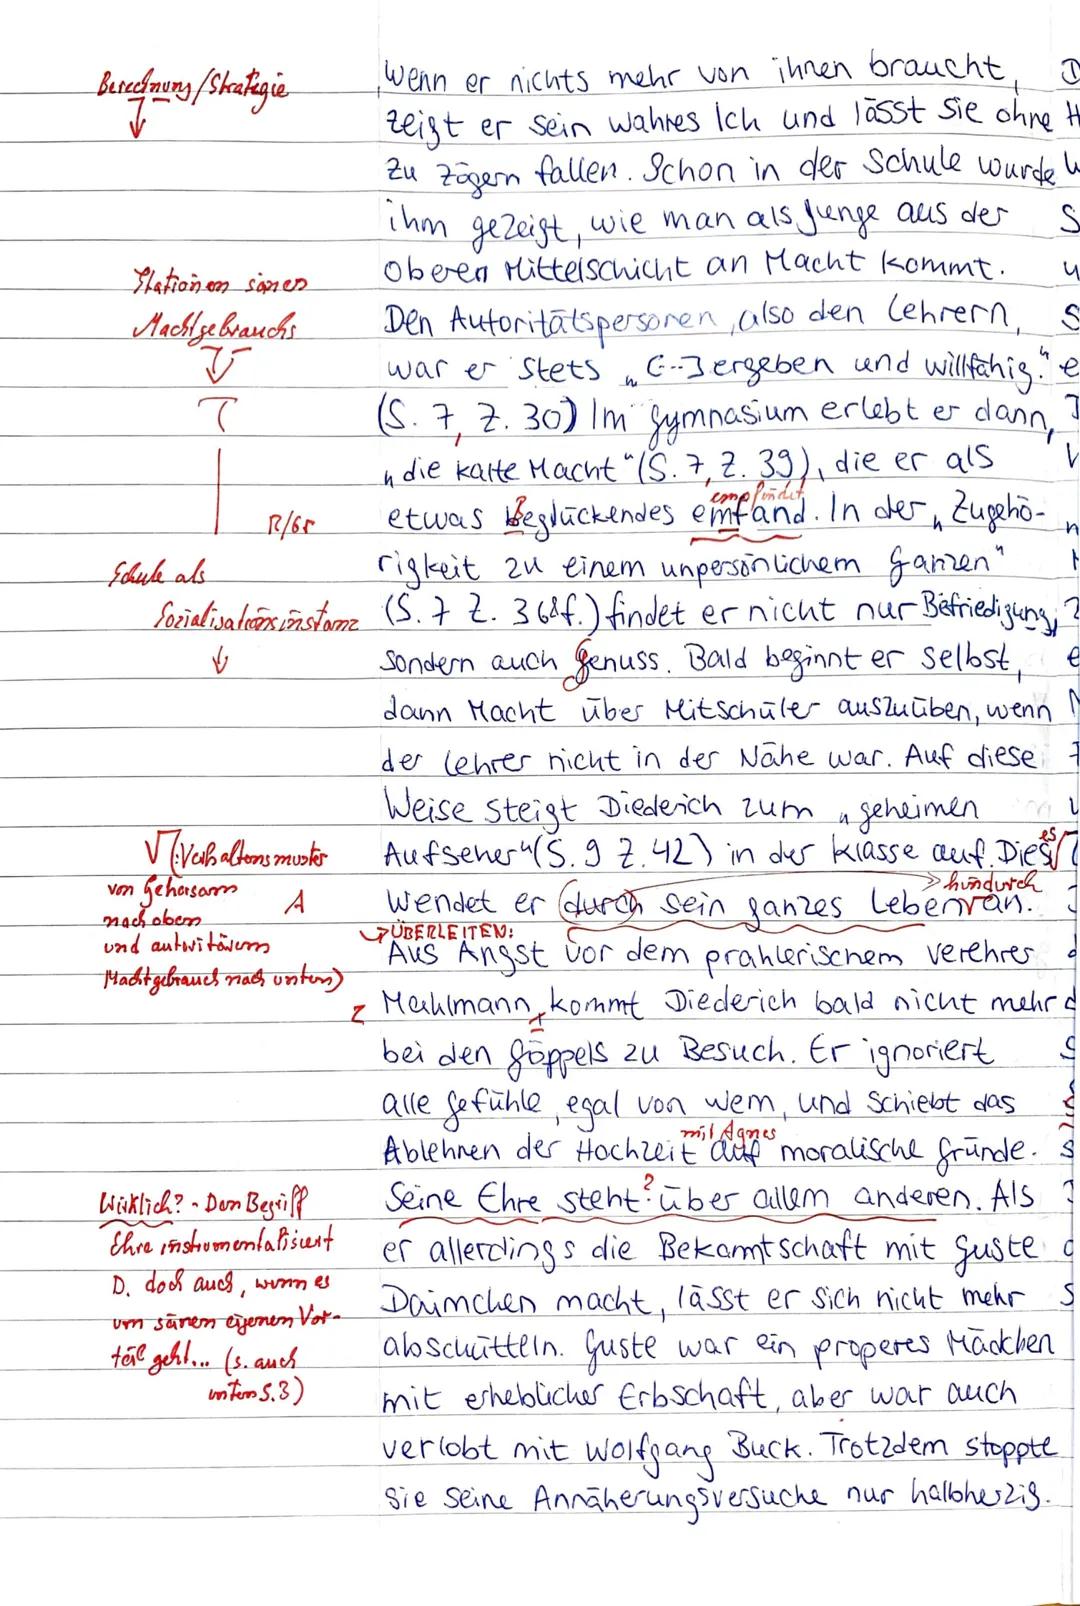 Berechnung/Strategie
wenn er nichts mehr von ihnen braucht,
zeigt er sein wahres Ich und lässt sie ohne
zu zögern fallen. Schon in der Schule wurde
ihm gezeigt, wie man als Junge aus der
oberen Mittelschicht an Macht kommt.
Stationen seines
Machtgebrauchs
Den Autoritätspersonen, also den Lehrern,
war er stets „[...] ergeben und willfähig."
(S. 7, Z. 30) Im Gymnasium erlebt er dann,
T
„die kalte Macht" (S. 7, Z. 39), die er als
empfindet
etwas Beglückendes emfand. In der „Zugehö-
R/Gr
rigkeit zu einem unpersönlichem Ganzen"
Schule als
Sozialisationsinstanz
(S. 7 Z. 36ff.) findet er nicht nur Befriedigung,
sondern auch Genuss. Bald beginnt er selbst,
dann Macht über Mitschüler auszuüben, wenn
der Lehrer nicht in der Nähe war. Auf diese
Weise steigt Diederich zum „geheimen
Aufseher" (S. 9 Z. 42) in der Klasse auf. Dies
es
√ (: Verhaltensmuster
von Gehorsam
nach oben
und autoritärem
Machtgebrauch nach unten)
A
hindurch
wendet er durch sein ganzes Leben ran.
ÜBERLEITEN:
Aus Angst vor dem prahlerischem verehrer
Z
Mahlmann, kommt Diederich bald nicht mehr
bei den Göppels zu Besuch. Er ignoriert
alle Gefühle, egal von wem, und schiebt das
mit Agnes
Ablehnen der Hochzeit auf moralische Gründe.
Seine Ehre steht ? über allem anderen. Als
Wirklich? - Den Begriff
Ehre instrumentalisiert
D. doch auch, wenn es
um seinen eigenen Vor-
teil geht... (s. auch
unten S. 3)
er allerdings die Bekanntschaft mit Guste
Daimchen macht, lässt er sich nicht mehr
abschütteln. Guste war ein properes Mädchen
mit erheblicher Erbschaft, aber war auch
verlobt mit Wolfgang Buck. Trotzdem stoppte
sie seine Annäherungsversuche nur halbherzig.